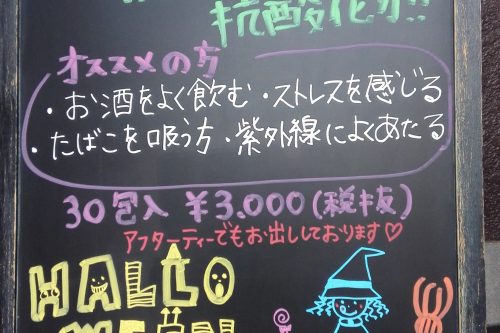 抗酸化力!!
オススメの方
・お酒をよく飲む・ストレスを感じる
・たばこを吸う方・紫外線によくあたる
30包入 ¥3,000(税抜)
アフターティーでもお出ししております♡
HALLO
WEEN